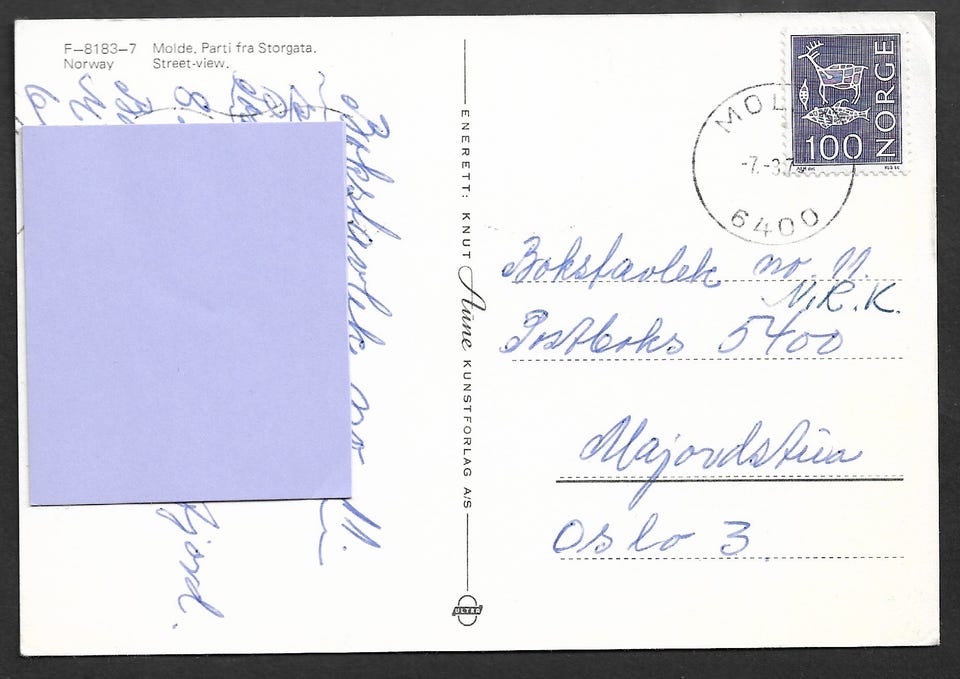 F-8183-7 Molde. Parti fra Storgata.
Norway Street-view.
Bokstavlek. no 11.
fjord.
ENERETT: KNUT Aune KUNSTFORLAG A/S
ULTRA
NORGE
100
MOL
-7.-3.7
6400
Bokstavlek no. 11.
N.R.K.
Postboks 5400
Majordstua
Oslo 3